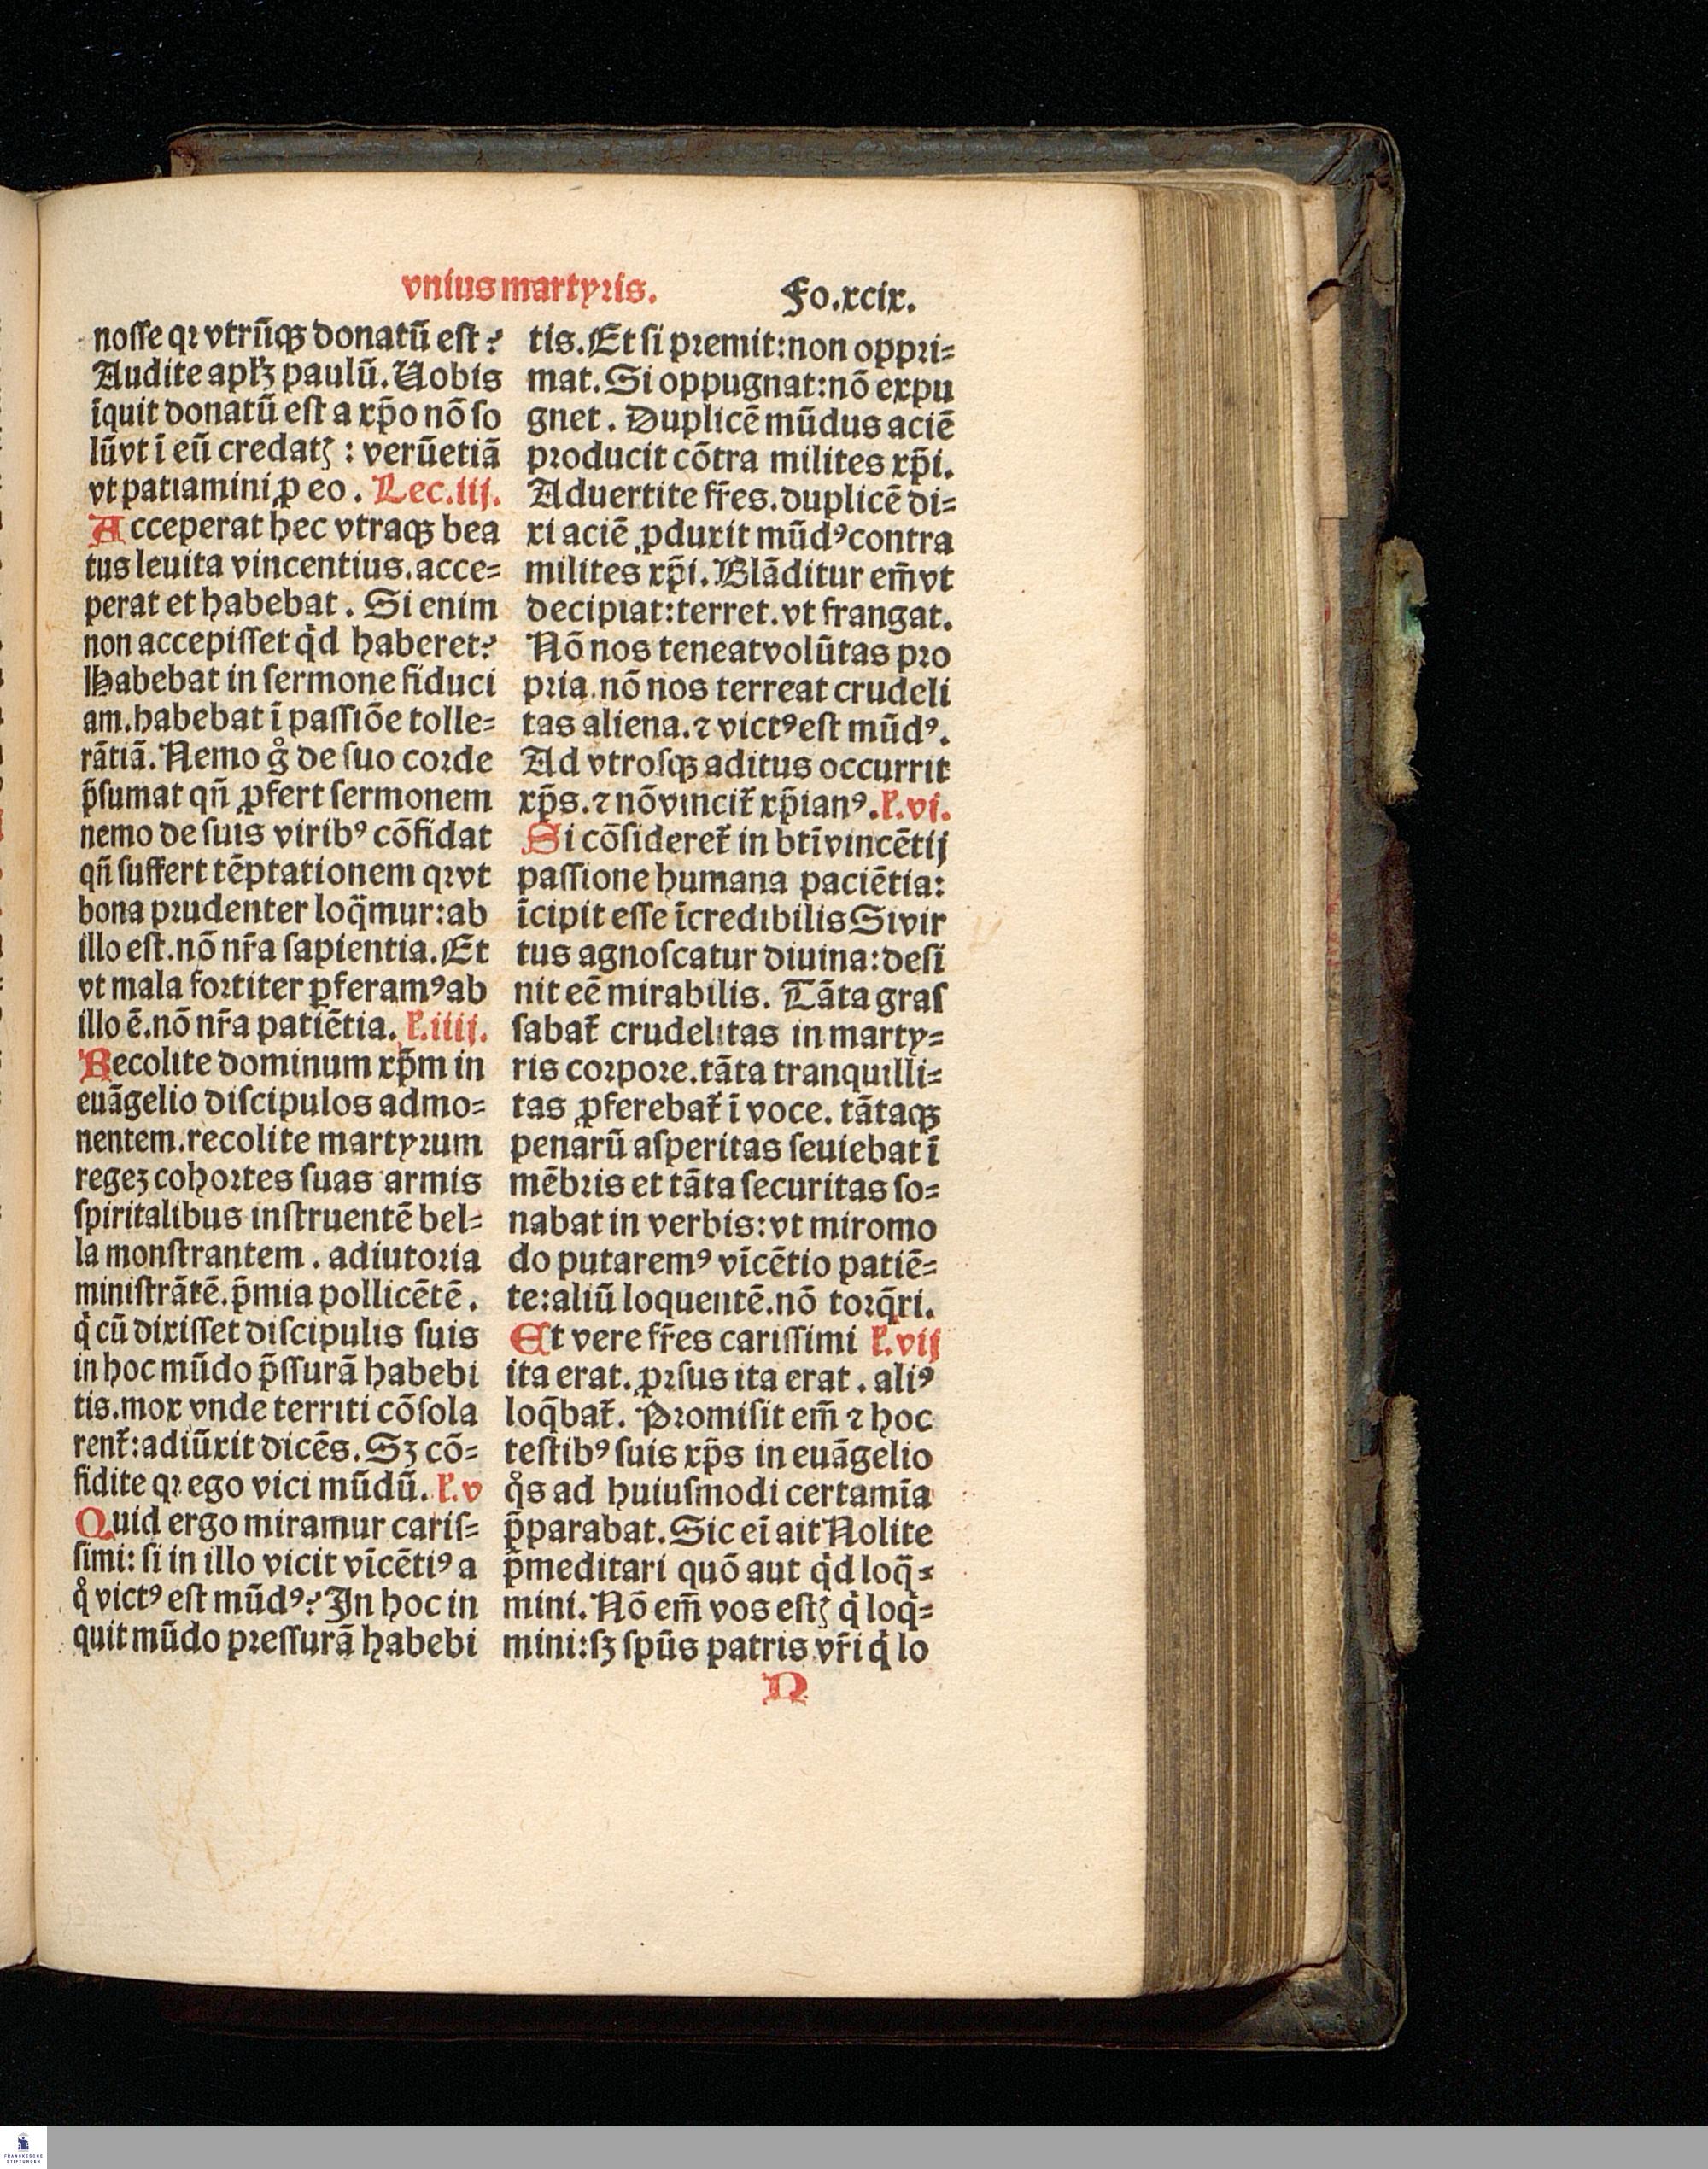 vnius martyris. Fo.xcix.
nosse qꝛ vtrūqꝫ donatū est?
Audite apl'ꝫ paulū. Uobis
īquit donatū est a xp̄o nō so
lūvt ī eū credatꝭ : verūetiā
vt patiamini ꝓ eo. Lec.iij.
Acceperat hec vtraqꝫ bea
tus leuita vincentius.acce⸗
perat et habebat. Si enim
non accepisset qͥd haberet?
Habebat in sermone fiduci
am.habebat ī passiōe tolle⸗
rātiā. Nemo gͦ de suo corde
p̄sumat qn̄ ꝓfert sermonem
nemo de suis viribꝰ cōfidat
qn̄ suffert tēptationem qꝛvt
bona prudenter loq̄mur:ab
illo est.nō nr̄a sapientia. Et
vt mala fortiter ꝑferamꝰab
illo ē.nō nr̄a patiētia. ł.iiij.
Recolite dominum xp̄m in
euāgelio discipulos admo⸗
nentem.recolite martyrum
regeꝫ cohortes suas armis
spiritalibus instruentē bel⸗
la monstrantem. adiutoria
ministrātē.p̄mia pollicētē.
qͥ cū dixisset discipulis suis
in hoc mūdo p̄ssurā habebi
tis.mox vnde territi cōsola
rent᷑:adiūxit dicēs. Sꝫ cō⸗
fidite qꝛ ego vici mūdū. ł.v
Quid ergo miramur caris⸗
simi: si in illo vicit vīcētiꝰ a
qͦ victꝰ est mūdꝰ? In hoc in
quit mūdo pressurā habebi
tis. Et si premit:non oppri⸗
mat. Si oppugnat:nō expu
gnet. Duplicē mūdus aciē
producit cōtra milites xp̄i.
Aduertite fr̄es.duplicē di⸗
xi aciē ꝓduxit mūdꝰcontra
milites xp̄i. Blāditur em̄vt
decipiat:terret.vt frangat.
Nō nos teneatvolūtas pro
pria.nō nos terreat crudeli
tas aliena.⁊ victꝰest mūdꝰ.
Ad vtrosqꝫ aditus occurrit
xp̄s.⁊ nōvincit᷑ xp̄ianꝰ. ł.vi.
Si cōsideret᷑ in btīvincētij
passione humana paciētia:
īcipit esse īcredibilis Sivir
tus agnoscatur diuina:desi
nit eē mirabilis. Tāta gras
sabat᷑ crudelitas in marty⸗
ris corpore.tāta tranquilli⸗
tas ꝓferebat᷑ ī voce. tātaqꝫ
penarū asperitas seuiebat ī
mēbris et tāta securitas so⸗
nabat in verbis:vt miromo
do putaremꝰ vīcētio patiē⸗
te:aliū loquentē.nō torq̄ri.
Et vere fr̄es carissimi ł.vij
ita erat.ꝓrsus ita erat. aliꝰ
loq̄bat᷑. Promisit em̄ ⁊ hoc
testibꝰ suis xp̄s in euāgelio
qͦs ad huiusmodi certamīa
p̄parabat. Sic eī ait Nolite
p̄meditari quō aut qͥd loq̄⸗
mini. Nō em̄ vos estꝭ qͥ loqͥ⸗
mini:sꝫ spūs patris vr̄i qͥ lo
N